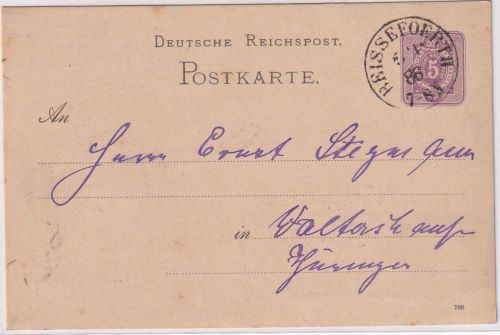 DEUTSCHE REICHSPOST.
POSTKARTE.
REISSEFOERTH
86
7-8 N
5
An
Herrn Ernst Stegmann
in Waltershausen
Thüringen
786